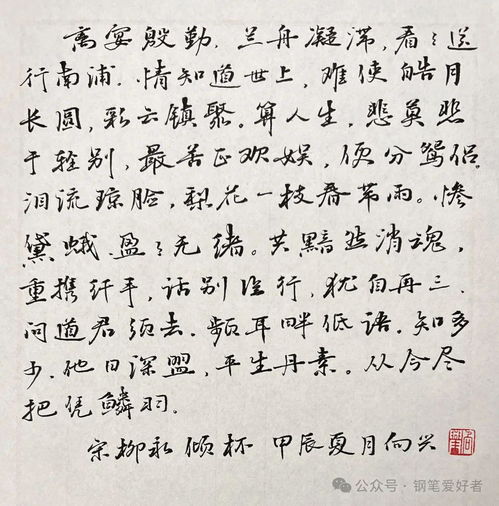 离宴殷勤.兰舟凝滞,看〻送
行南浦.情知道世上,难使皓月
长圆,彩云镇聚。算人生,悲莫悲
于轻别,最苦正欢娱,便分鸳侣.
泪流琼脸,梨花一枝春带雨。惨
黛蛾.盈〻无绪。共黯然消魂,
重携纤手,话别临行,犹自再三.
问道君须去.频耳畔低语.知多
少.他日深盟,平生丹素。从今尽
把凭鳞羽.
宋柳永倾杯 甲辰夏月向兴
公众号·钢笔爱好者